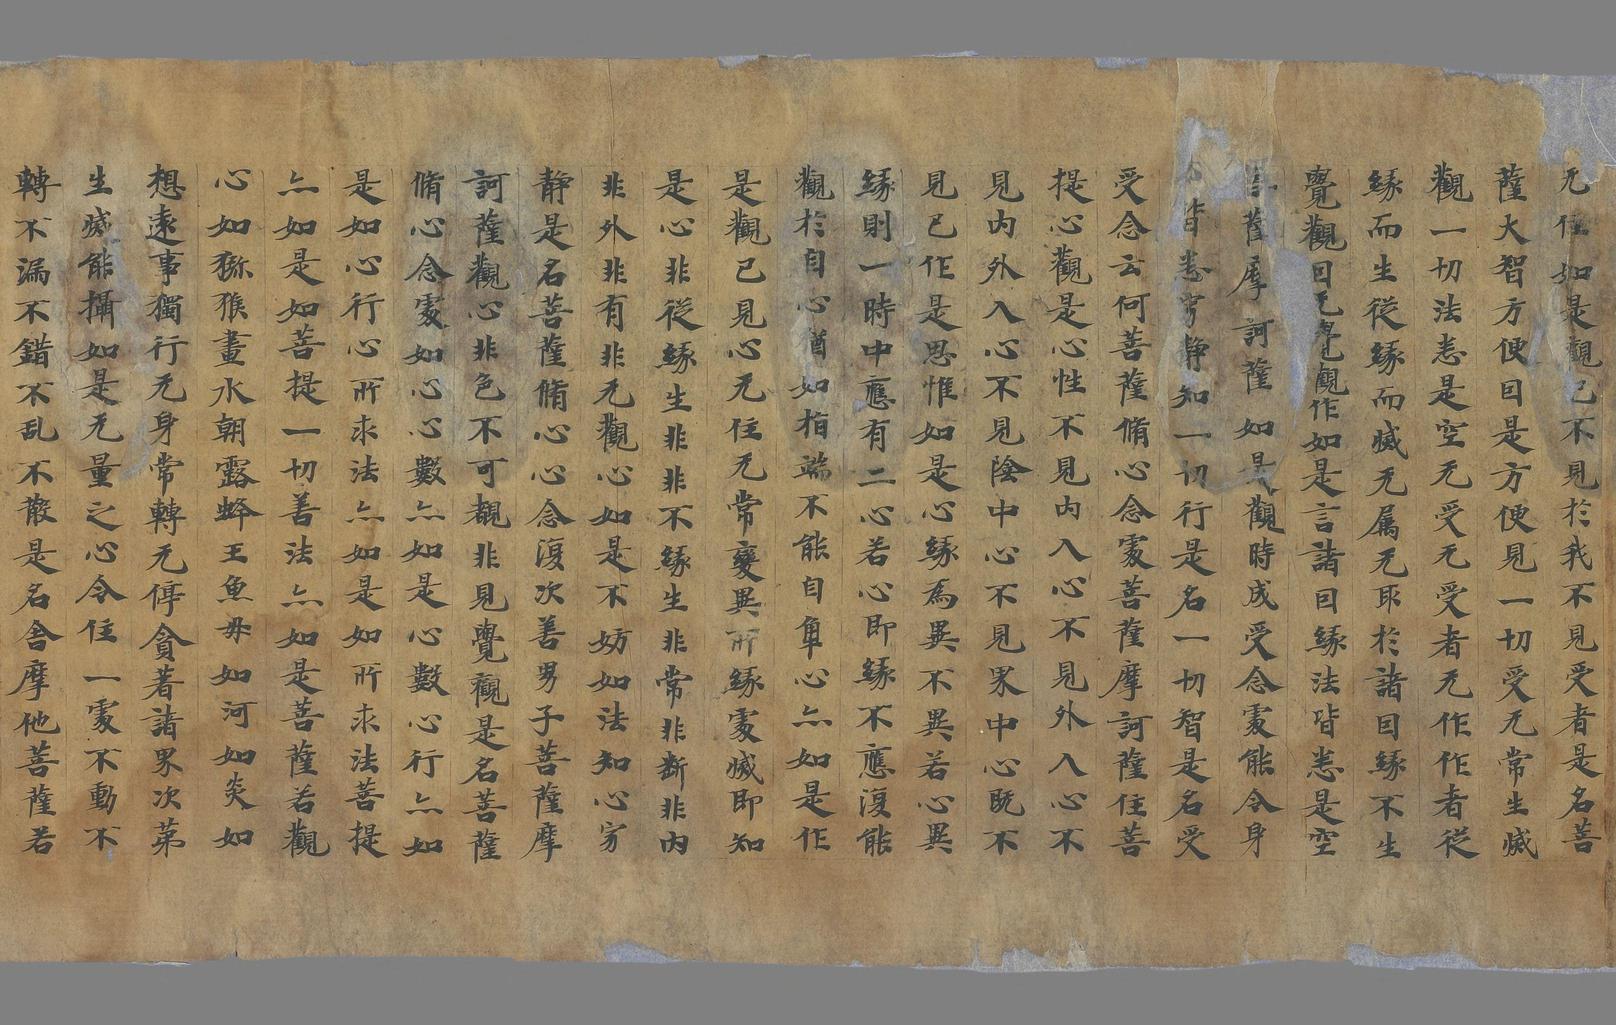 无住如是觀已不見於我不見受者是名菩
薩大智方便曰是方便見一切受无常生滅
觀一切法悉是空无受无受者无作作者從
緣而生從緣而滅无属无取於諸因緣不生
覺觀因无覺觀作如是言諸因緣法皆悉是空
薩摩訶薩如是觀時成受念處能令身
皆悉寂静知一切行是名一切智是名受
受念云何菩薩脩心念處菩薩摩訶薩住菩
提心觀是心性不見内入心不見外入心不
見内外入心不見陰中心不見界中心既不
見已作是思惟如是心緣為異不異若心異
緣則一時中應有二心若心即緣不應復能
觀於自心猶如指端不能自觸心亦如是作
是觀已見心无住无常變異所緣處滅即知
是心非從緣生非非不緣生非常非断非内
非外非有非无觀心如是不妨如法知心寂
静是名菩薩脩心心念復次善男子菩薩摩
訶薩觀心非色不可覩非見覺觀是名菩薩
脩心念處如心心數亦如是心數心行亦如
是如心行心所求法亦如是如所求法菩提
亦如是如菩提一切善法亦如是菩薩若觀
心如獼猴畫水朝露蜂王魚毋如河如炎如
想遠事獨行无身常轉无停貪著諸界次第
生滅能攝如是无量之心令住一處不動不
轉不漏不錯不乱不散是名舍摩他菩薩若